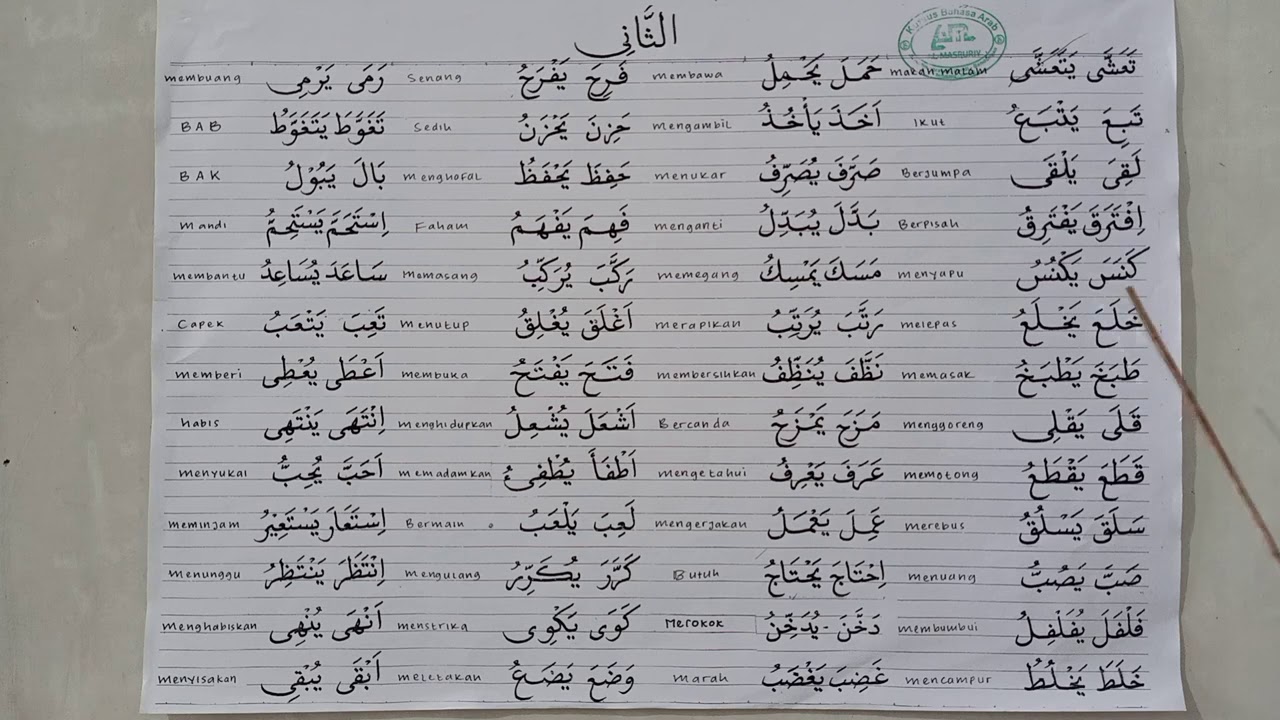 الثَّانِي
Kursus Bahasa Arab
AL MASRURIY
تَعَشَّى يَتَعَشَّى makan malam حَمَلَ يَحْمِلُ membawa فَرِحَ يَفْرَحُ Senang رَمَى يَرْمِي membuang
تَبِعَ يَتْبَعُ Ikut اَخَذَ يَأْخُذُ mengambil حَزِنَ يَحْزَنُ Sedih تَغَوَّطَ يَتَغَوَّطُ BAB
لَقِيَ يَلْقَى Berjumpa صَرَّفَ يُصَرِّفُ menukar حَفِظَ يَحْفَظُ menghofal بَالَ يَبُوْلُ BAK
اِفْتَرَقَ يَفْتَرِقُ Berpisah بَدَّلَ يُبَدِّلُ menganti فَهِمَ يَفْهَمُ Faham اِسْتَحَمَّ يَسْتَحِمُّ mandi
كَنَسَ يَكْنُسُ menyapu مَسَكَ يَمْسِكُ memegang رَكَّبَ يُرَكِّبُ memasang سَاعَدَ يُسَاعِدُ membantu
خَلَعَ يَخْلَعُ melepas رَتَّبَ يُرَتِّبُ merapikan اَغْلَقَ يُغْلِقُ menutup تَعِبَ يَتْعَبُ Capek
طَبَخَ يَطْبَخُ memasak نَظَّفَ يُنَظِّفُ membersihkan فَتَحَ يَفْتَحُ membuka اَعْطَى يُعْطِى memberi
قَلَى يَقْلِى menggoreng مَزَحَ يَمْزَحُ Bercanda اَشْعَلَ يُشْعِلُ menghidupkan اِنْتَهَى يَنْتَهِى habis
قَطَعَ يَقْطَعُ memotong عَرَفَ يَعْرِفُ mengetahui اَطْفَأَ يُطْفِئُ memadamkan اَحَبَّ يُحِبُّ menyukai
سَلَقَ يَسْلُقُ merebus عَمِلَ يَعْمَلُ mengerjakan لَعِبَ يَلْعَبُ Bermain اِسْتَعَارَ يَسْتَعِيْرُ meminjam
صَبَّ يَصُبُّ menuang اِحْتَاجَ يَحْتَاجُ Butuh كَرَّرَ يُكَرِّرُ mengulang اِنْتَظَرَ يَنْتَظِرُ menunggu
فَلْفَلَ يُفَلْفِلُ membumbui دَخَّنَ - يُدَخِّنُ Merokok كَوَى يَكْوِى menstrika اَنْهَى يُنْهِى menghabiskan
خَلَطَ يَخْلُطُ mencampur غَضِبَ يَغْضَبُ marah وَضَعَ يَضَعُ meletakan اَبْقَى يُبْقِى menyisakan